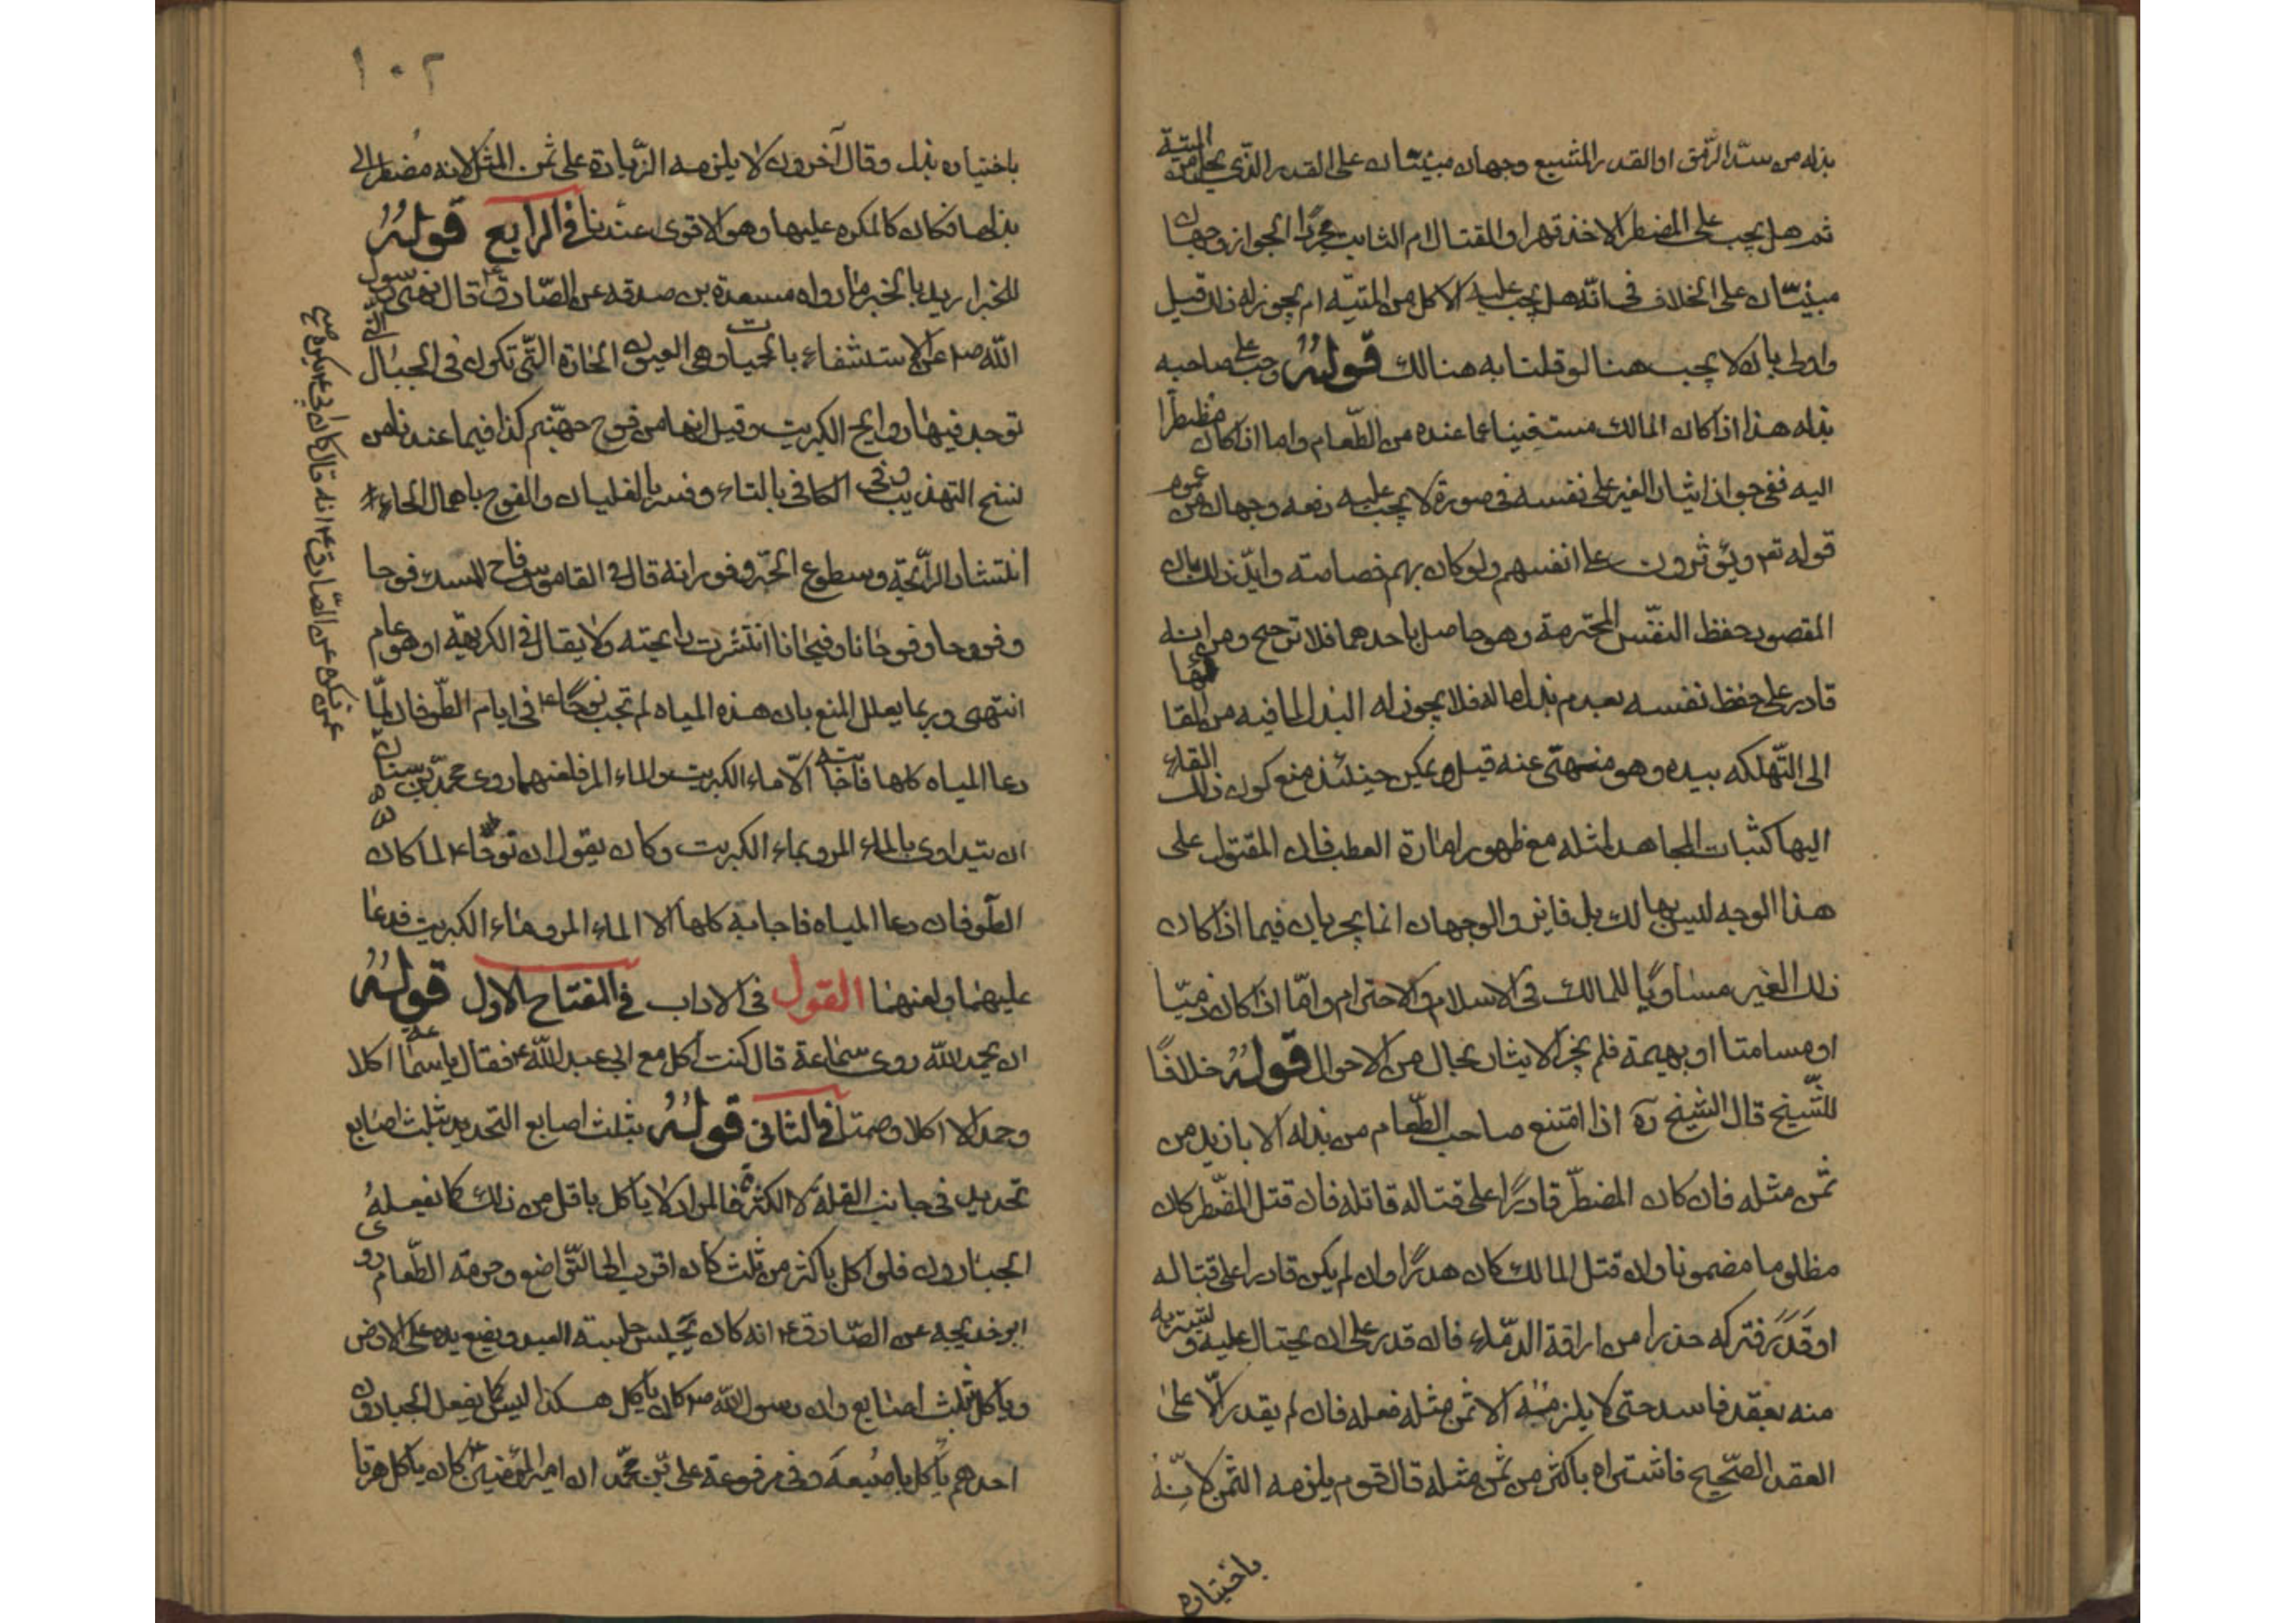 بذله من سدّ الرّمق او القدر المشبع وجهان مبنيّان على القدر الذّي يحل من الميتة
ثم هل يجب على المضطر الاخذ قهرا والقتال ام الثابت مجرّد الجواز وجهان
مبنيّان على الخلاف فى انّه هل يجب عليه الاكل من الميتة ام يجوز له ذلك قيل
واولى بان لا يجب هنا لو قلنا به هنالك قوله وجب على صاحبه
بذله هذا اذا كان المالك مستغنيا عما عنده من الطّعام واما اذا كان مضطرا
اليه ففى جواز ايثار الغير على نفسه فى صورة لا يجب عليه دفعه وجهان من عموم
قوله تع ويؤثرون على انفسهم ولو كان بهم خصاصة وايّد ذلك بان
المقصود حفظ النفس المحترمة وهو حاصل باحدهما فلا ترجيح ومن انه
قادر على حفظ نفسه بعدم بذل ماله فلا يجوز له البذل لما فيه من القائها
الى التّهلكه بيده وهو منهىّ عنه قيل ويمكن حينئذ منع كون ذلك القاء
اليها كثبات المجاهد لمثله مع ظهور امارة العطب فان المقتول على
هذا الوجه ليس بهالك بل فايز والوجهان انما يجريان فيما اذا كان
ذلك الغير مساويا للمالك فى الاسلام والاحترام وامّا اذا كان ذميّا
او مسامتا او بهيمة فلم يجز الايثار بحال من الاحوال قوله خلافًا
للشّيخ قال الشيخ ره اذا امتنع صاحب الطّعام من بذله الا بازيد من
ثمن مثله فان كان المضطرّ قادرًا على قتاله قاتله فان قتل المضّطر كان
مظلوما مضمونا وان قتل المالك كان هدرًا وان لم يكن قادرا على قتاله
او قدر فتركه حذرا من اراقة الدّماء فان قدر على ان يحتال عليه ويشتريه
منه بعقد فاسد حتى لا يلزمه الا ثمن مثله فعله فان لم يقدر الّا على
العقد الصّحيح فاشتراه باكثر من ثمن مثله قال قوم يلزمه الثمن لانّه
باختياره
١٠٢
باختياره بذل وقال آخرون لا يلزمه الزّيادة على ثمن المثل لانه مضطر الى
بذلها فكان كالمكره عليها وهو الاقوى عندنا فى الرابع قوله
للخبر اريد بالخبر ما رواه مسعدة بن صدقه عن الصّادق ع قال نهى رسول
الله ص عن الاستشفاء بالحميات وهى العيون الحارة التّى تكون فى الجبال التى
توجد فيها روايح الكبريت وقيل انها من فوح جهنّم كذا فيما عندنا من
نسخ التهذيب وفى الكافى بالتاء وفسر بالغليان والفوح باهمال الحاء
انتشار الرّائحة وسطوع الحرّ وفورانه قال فى القاموس فاح المسك فوحا
وفووحا وفوحانا وفيحانا انتشرت رايحته ولا يقال فى الكريهة او هو عام
انتهى وربما يعلل المنع بان هذه المياه لم تجب نوحًا ع فى ايام الطّوفان لمّا
دعا المياه كلها فاجابته الّا ماء الكبريت والماء المر فلعنهما روى محمّد بن سنان
ان يتداوى بالماء المر وبماء الكبريت وكان يقول ان نوحًا ع لما كان
الطّوفان دعا المياه فاجابته كلها الا الماء المر وماء الكبريت فدعا
عليهما ولعنهما القول فى الاداب فى المفتاح الاول قوله
ان يحمد الله روى سماعة قال كنت آكل مع ابى عبد الله ع فقال يا سماعة اكلا
وحمدا لا اكلا وصمتا فى الثانى قوله بثلث اصابع التحديد بثلث اصابع
تحديد فى جانب القلة لا الكثرة فالمراد لا ياكل باقل من ذلك كما يفعله
الجبارون فلو اكل باكثر من ثلث كان اقرب الى التّواضع وحرمة الطّعام روى
ابو خديجه عن الصّادق ع انه كان يجلس جلسة العبد ويضع يده على الارض
وياكل بثلث اصابع وان رسول الله ص كان ياكل هكذا ليس كما يفعل الجبارون
احدهم ياكل باصبعه وفى مرفوعة على بن محمّد ان امير المؤمنين كان ياكل هرتا
عن بكره عن الصّادق ع انه قال كان ابى ع يكره صح